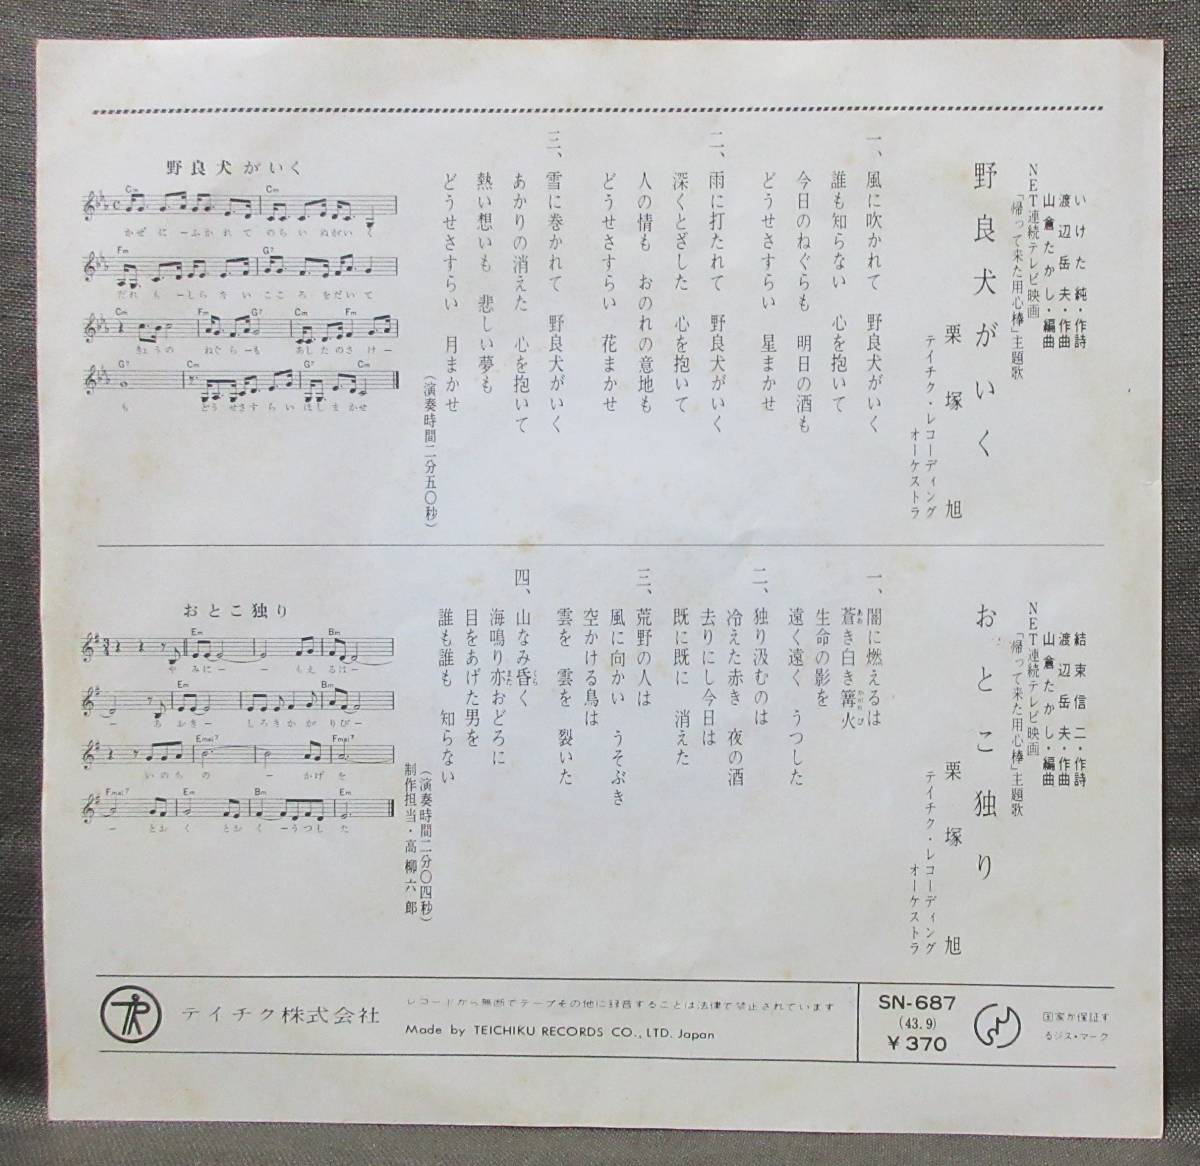 いけた純・作詩
渡辺岳夫・作曲
山倉たかし・編曲
NET連続テレビ映画
「帰って来た用心棒」主題歌
野良犬がいく
栗塚旭
テイチク・レコーディング
オーケストラ
一、風に吹かれて 野良犬がいく
誰も知らない 心を抱いて
今日のねぐらも 明日の酒も
どうせさすらい 星まかせ
二、雨に打たれて 野良犬がいく
深くとざした 心を抱いて
人の情も おのれの意地も
どうせさすらい 花まかせ
三、雪に巻かれて 野良犬がいく
あかりの消えた 心を抱いて
熱い想いも 悲しい夢も
どうせさすらい 月まかせ
(演奏時間二分五〇秒)
野良犬がいく
Cm Cm
かぜ に ーふかれ て のら い ぬがい く
Fm G7
だれ も ーしら ない こころ をだい て
Cm Fm G7 Cm Fm
きょうの ねぐらーも あしたのさ けー
G7 Cm G7 Cm
も どう せさす ら い ほし ま かせ
結束信二・作詩
渡辺岳夫・作曲
山倉たかし・編曲
NET連続テレビ映画
「帰って来た用心棒」主題歌
おとこ独り
栗塚旭
テイチク・レコーディング
オーケストラ
一、闇に燃えるは
蒼き白き篝火
あお かがりび
生命の影を
遠く遠く うつした
二、独り汲むのは
冷えた赤き 夜の酒
去りにし今日は
既に既に 消えた
三、荒野の人は
風に向かい うそぶき
空かける鳥は
雲を 雲を 裂いた
四、山なみ昏く
くら
海鳴り亦おどろに
また
目をあげた男を
誰も誰も 知らない
(演奏時間二分〇四秒)
制作担当・高柳六郎
おとこ独り
Em Bm
や みにー ー もえ るはー
Em Bm
ー あ おきー しろき かがりびー
Emai7 Fmai7
いのち の ー かげ を
Fmai7 Em Bm Em
ー とお く とお く ーうつし た
TR
テイチク株式会社
レコードから無断でテープその他に録音することは法律で禁止されています
Made by TEICHIKU RECORDS CO., LTD. Japan
SN-687
(43.9)
¥370
国家が保証す
るジス・マーク